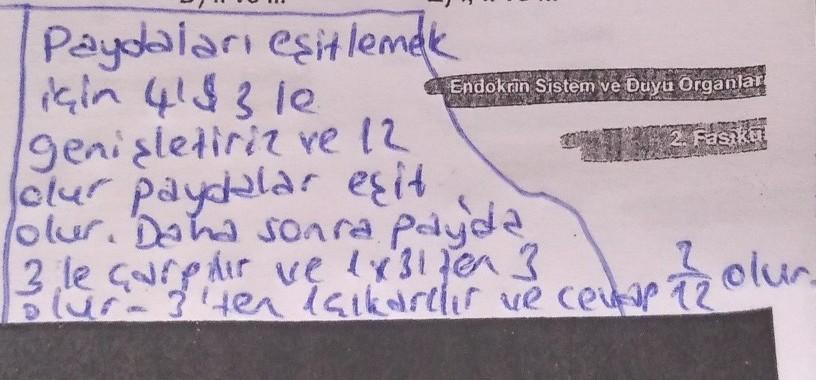 Paydaları eşitlemek
için 4'ü 3 le
genişletiriz ve 12
olur paydalar eşit
olur. Daha sonra payda
3 le çarpılır ve 1x3'ten 3
olur - 3'ten 1 çıkarılır ve cevap 2/12 olur.
Endokrin Sistem ve Duyu Organlar
2. Fasikü